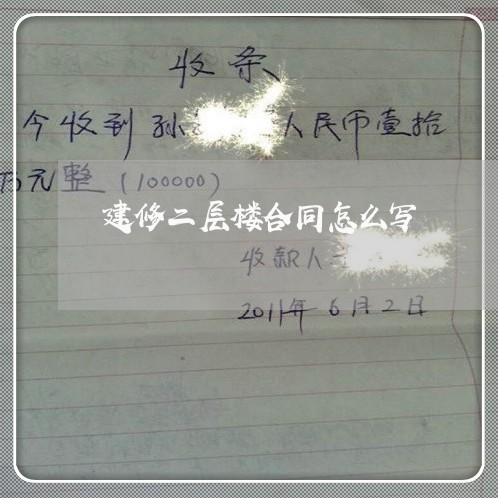 收条
今收到 孙 人民币壹拾
万元整（100000）
建修二层楼合同怎么写
收款人
2011年6月2日